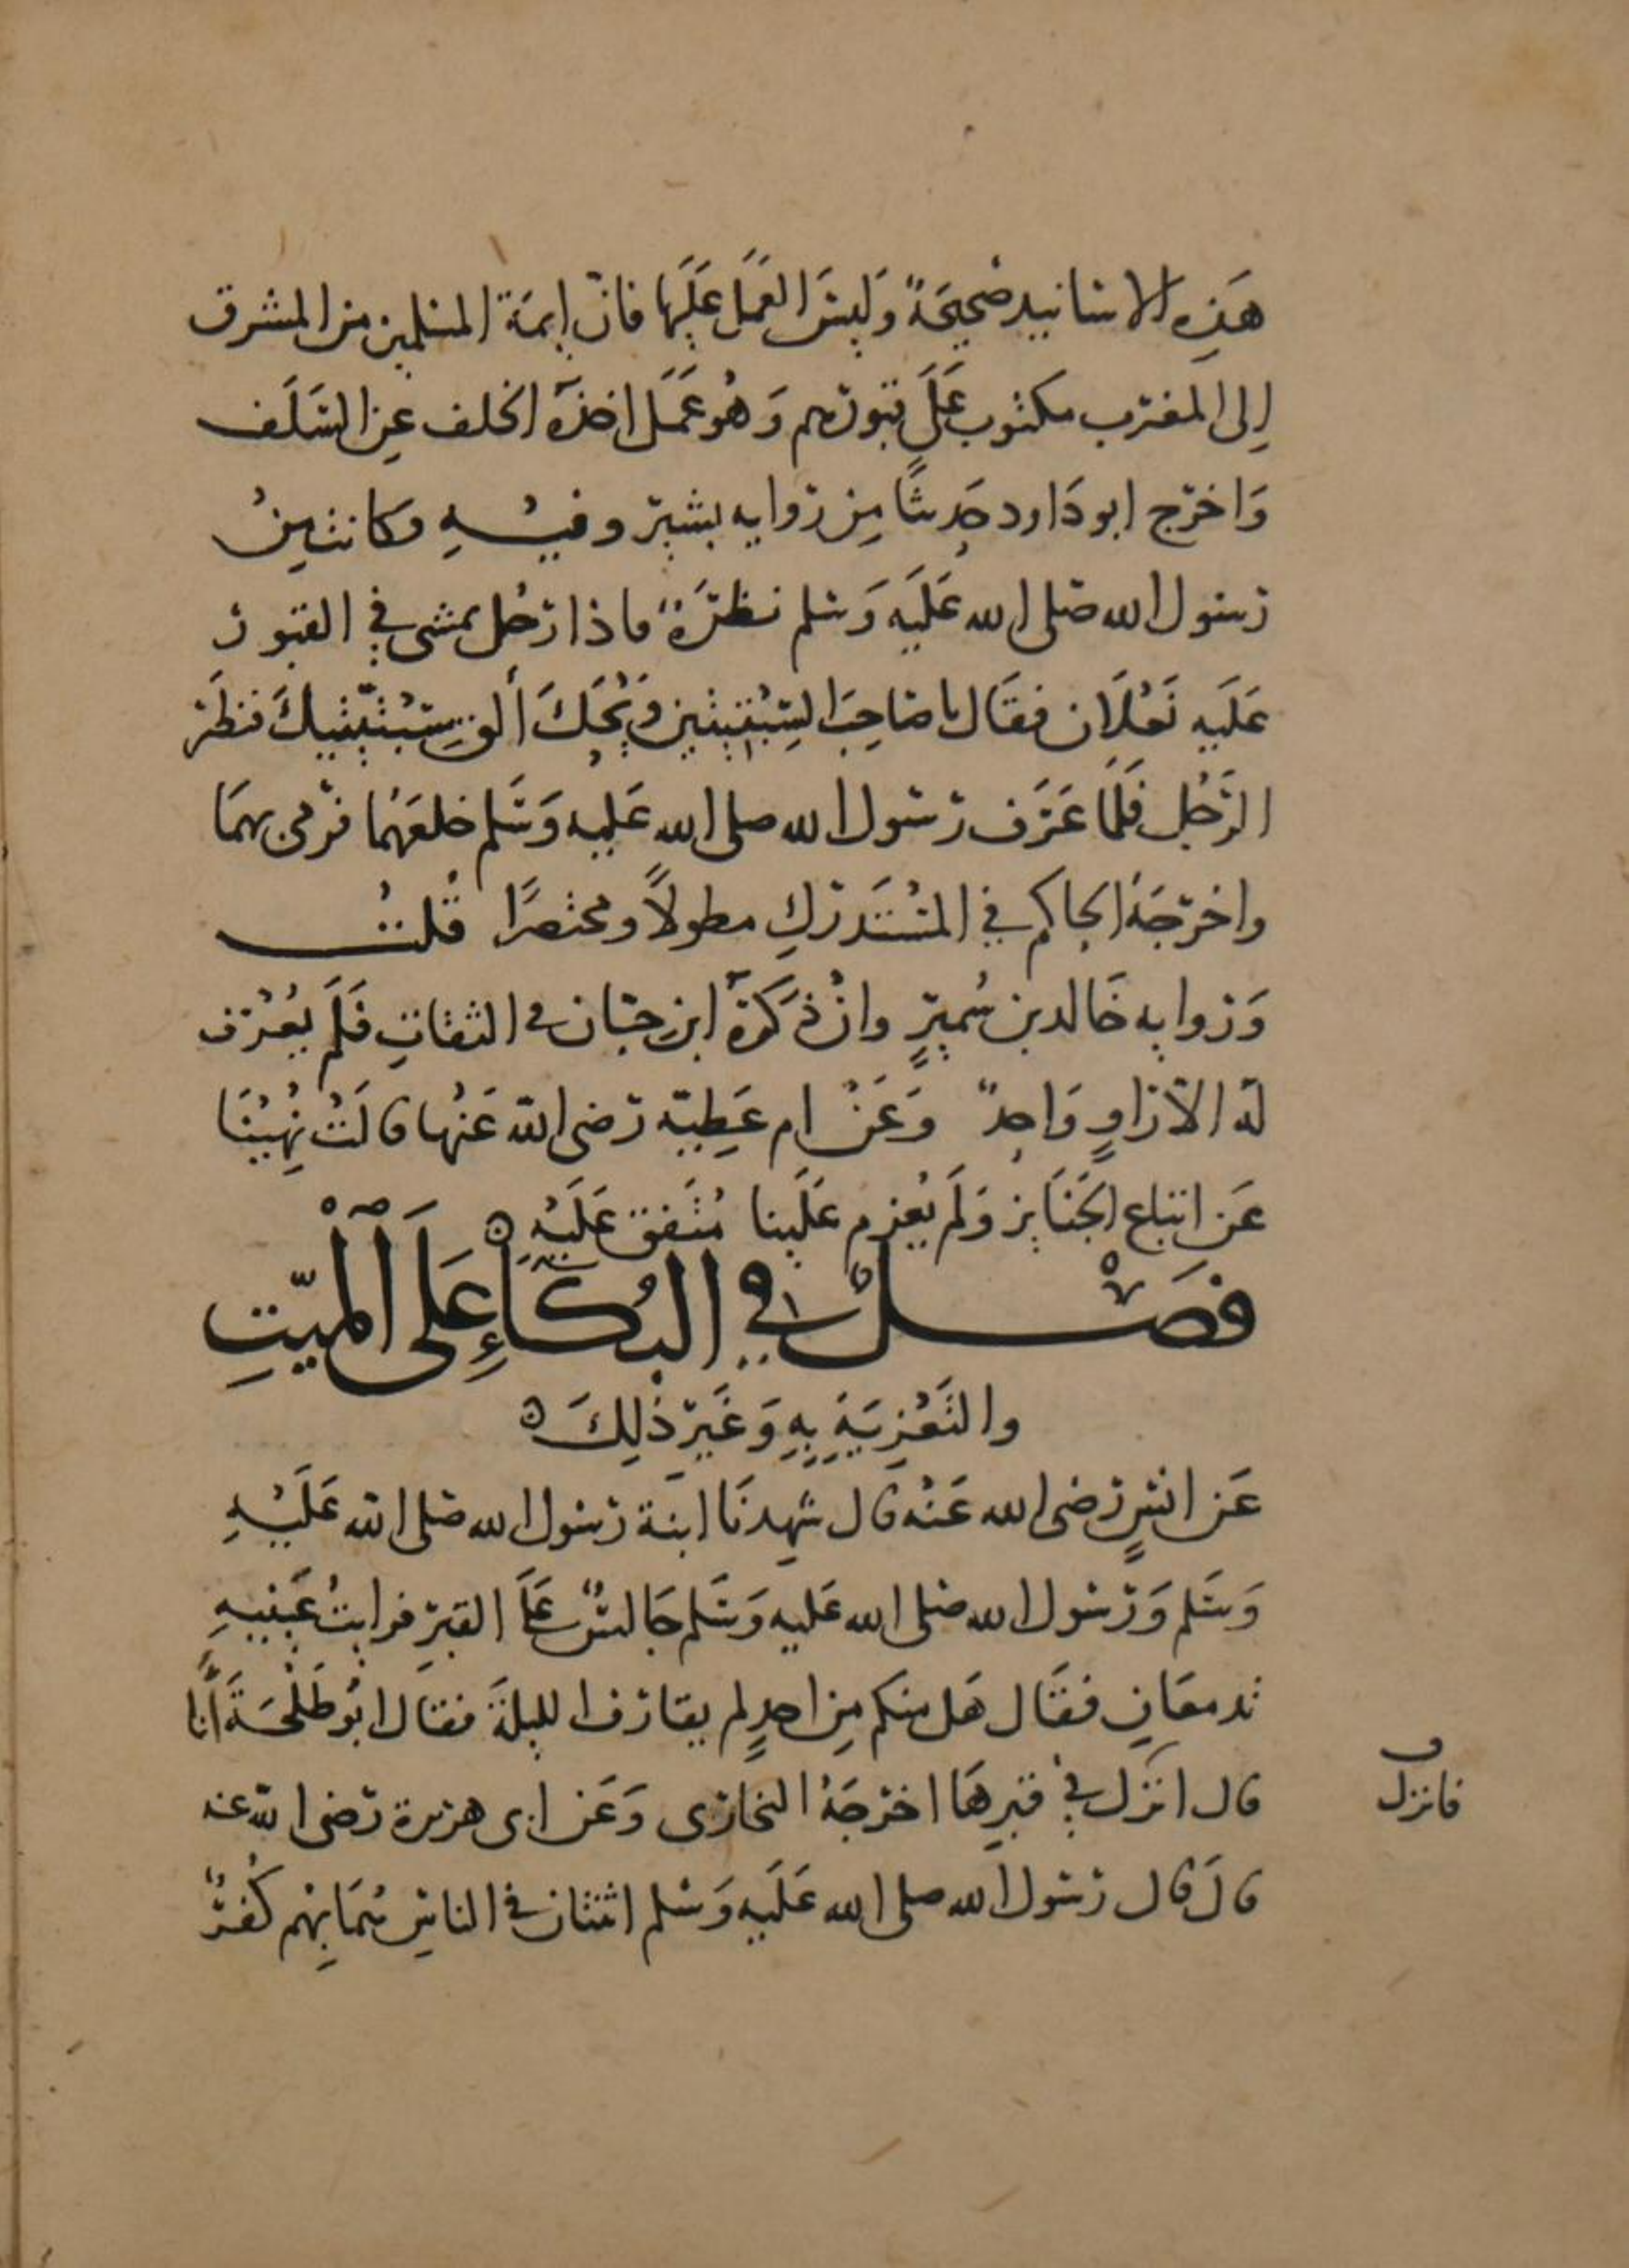 هَذِهِ الاسانيد صَحِيحَةٌ وَلَيسَ العَمَل عَلَيَها فان ايمَة المسلمين من المشرق
إلى المغرب مكتوب عَلَى قبورهم وَهُو عَمَل اخذهَ الخلف عَنِ السَلَف
وَاخرج ابو دَاود حَدِيثًا مِن روايه بشير وفيـه وكانت مِنْ
رسول الله صلى الله عَلَيَه وَسلم نظرَةٌ فاذا رَجُل يمشى في القبور
عَلَيه نَعْلَان فقَال يا صَاحِبَ السِبْتِيتين وَيْحَكَ ألق سِبْتِيَّتَيكَ فنظَر
الرَجُل فَلَمَا عَرَف رسُول الله صلى الله عَليه وَسَلم خلعَهُما فرمى بهمَا
واخرَجَهُ الحاكم في المسُتَدركِ مطولًا ومختصرًا قُلت
وَروايه خَالد بن سُميرٍ وانْ ذَكَرَهَ ابن حبَان في الثقاتِ فَلَم يُعْرَف
لَهُ الّا رَاوٍ وَاحِدٌ وَعَنْ ام عَطِيَّة رَضى الله عَنْها قَالَتْ نُهِيْنَا
عَن اتباع الجَنَايز وَلَم يُعزم عَلَينا مُتَفق عَلَيْهِ ۝
فصَـلٌ في البُكَآءِ عَلَى المَيّتِ
والتَعْزِيَةِ بِهِ وَغَيرَ ذَلِكَ ۝
عَن انسٍ رَضى الله عَنْهُ قَال شَهِدنَا ابنة رَسُول الله صَلى الله عَلَيْـهِ
وَسَلم وَرَسُول الله صَلى الله عَليه وَسَلم جَالسٌ عَلَى القبرِ فرايتُ عَينَيهِ
تدمعَانِ فقَال هَل منكم مِن احدٍ لم يقارف الليلَةَ فقال ابُو طَلْحَةَ أَنَا
قال انزَل في قبرِهَا اخرجَهُ البخارى وَعَن ابى هريرة رَضى الله عنه
قالَ قال رَسُول الله صلى الله عَلَيه وَسَلم اثنتان في الناسِ هُمَا بِهم كُفرٌ
ف
فانزل